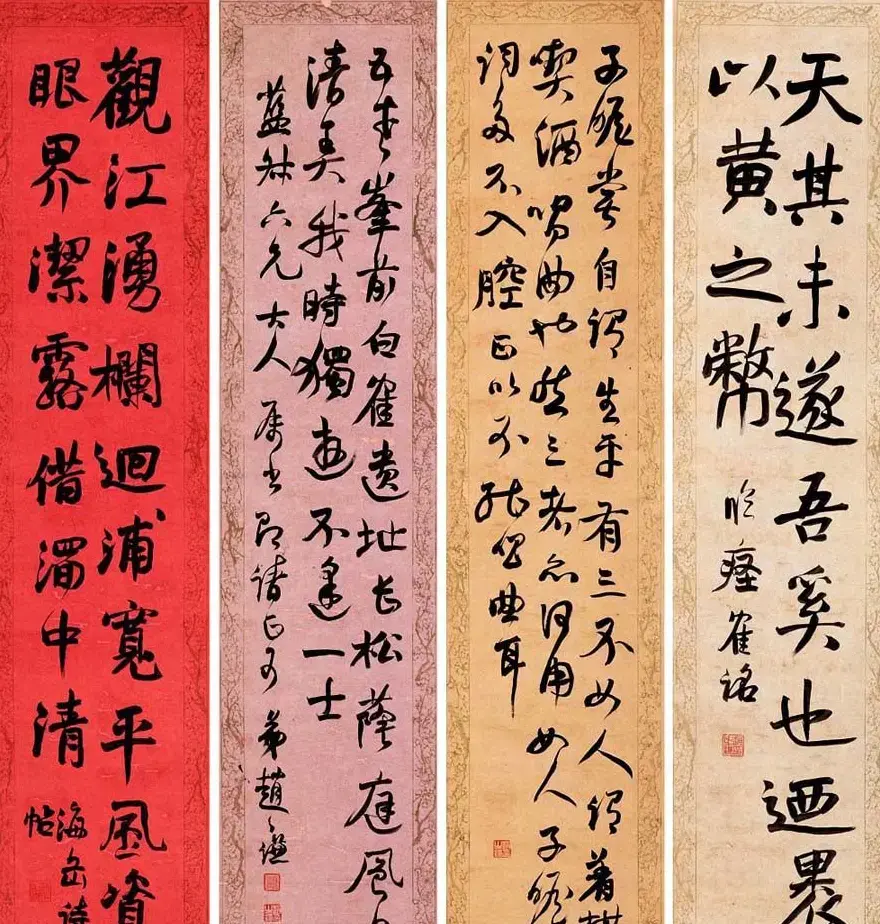 天其未遂吾奚也迺裹
以黃之幣
臨瘞隺銘
子瞻嘗自謂生平有三不如人謂著棋
喫酒唱曲也然三者亦何用如人子瞻
詞多不入腔正以不能唱曲耳
五老峯前白隺遺址長松蔭庭風日
清美我時獨遊不逢一士
藍叔六兄大人屬書即請正可弟趙之謙
觀江湧欄迴浦寬平風資
眼界潔露借濁中清
海岳詩
帖